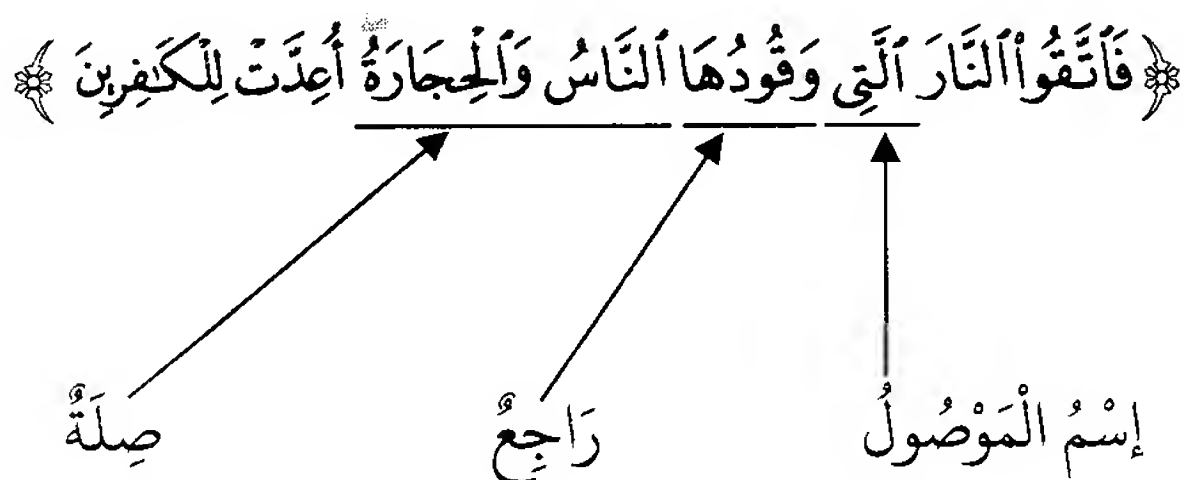 ﴿ فَٱتَّقُوا۟ ٱلنَّارَ ٱلَّتِى وَقُودُهَا ٱلنَّاسُ وَٱلْحِجَارَةُ ۖ أُعِدَّتْ لِلْكَـٰفِرِينَ ﴾
إِسْمُ الْمَوْصُولُ رَاجِعٌ صِلَةٌ